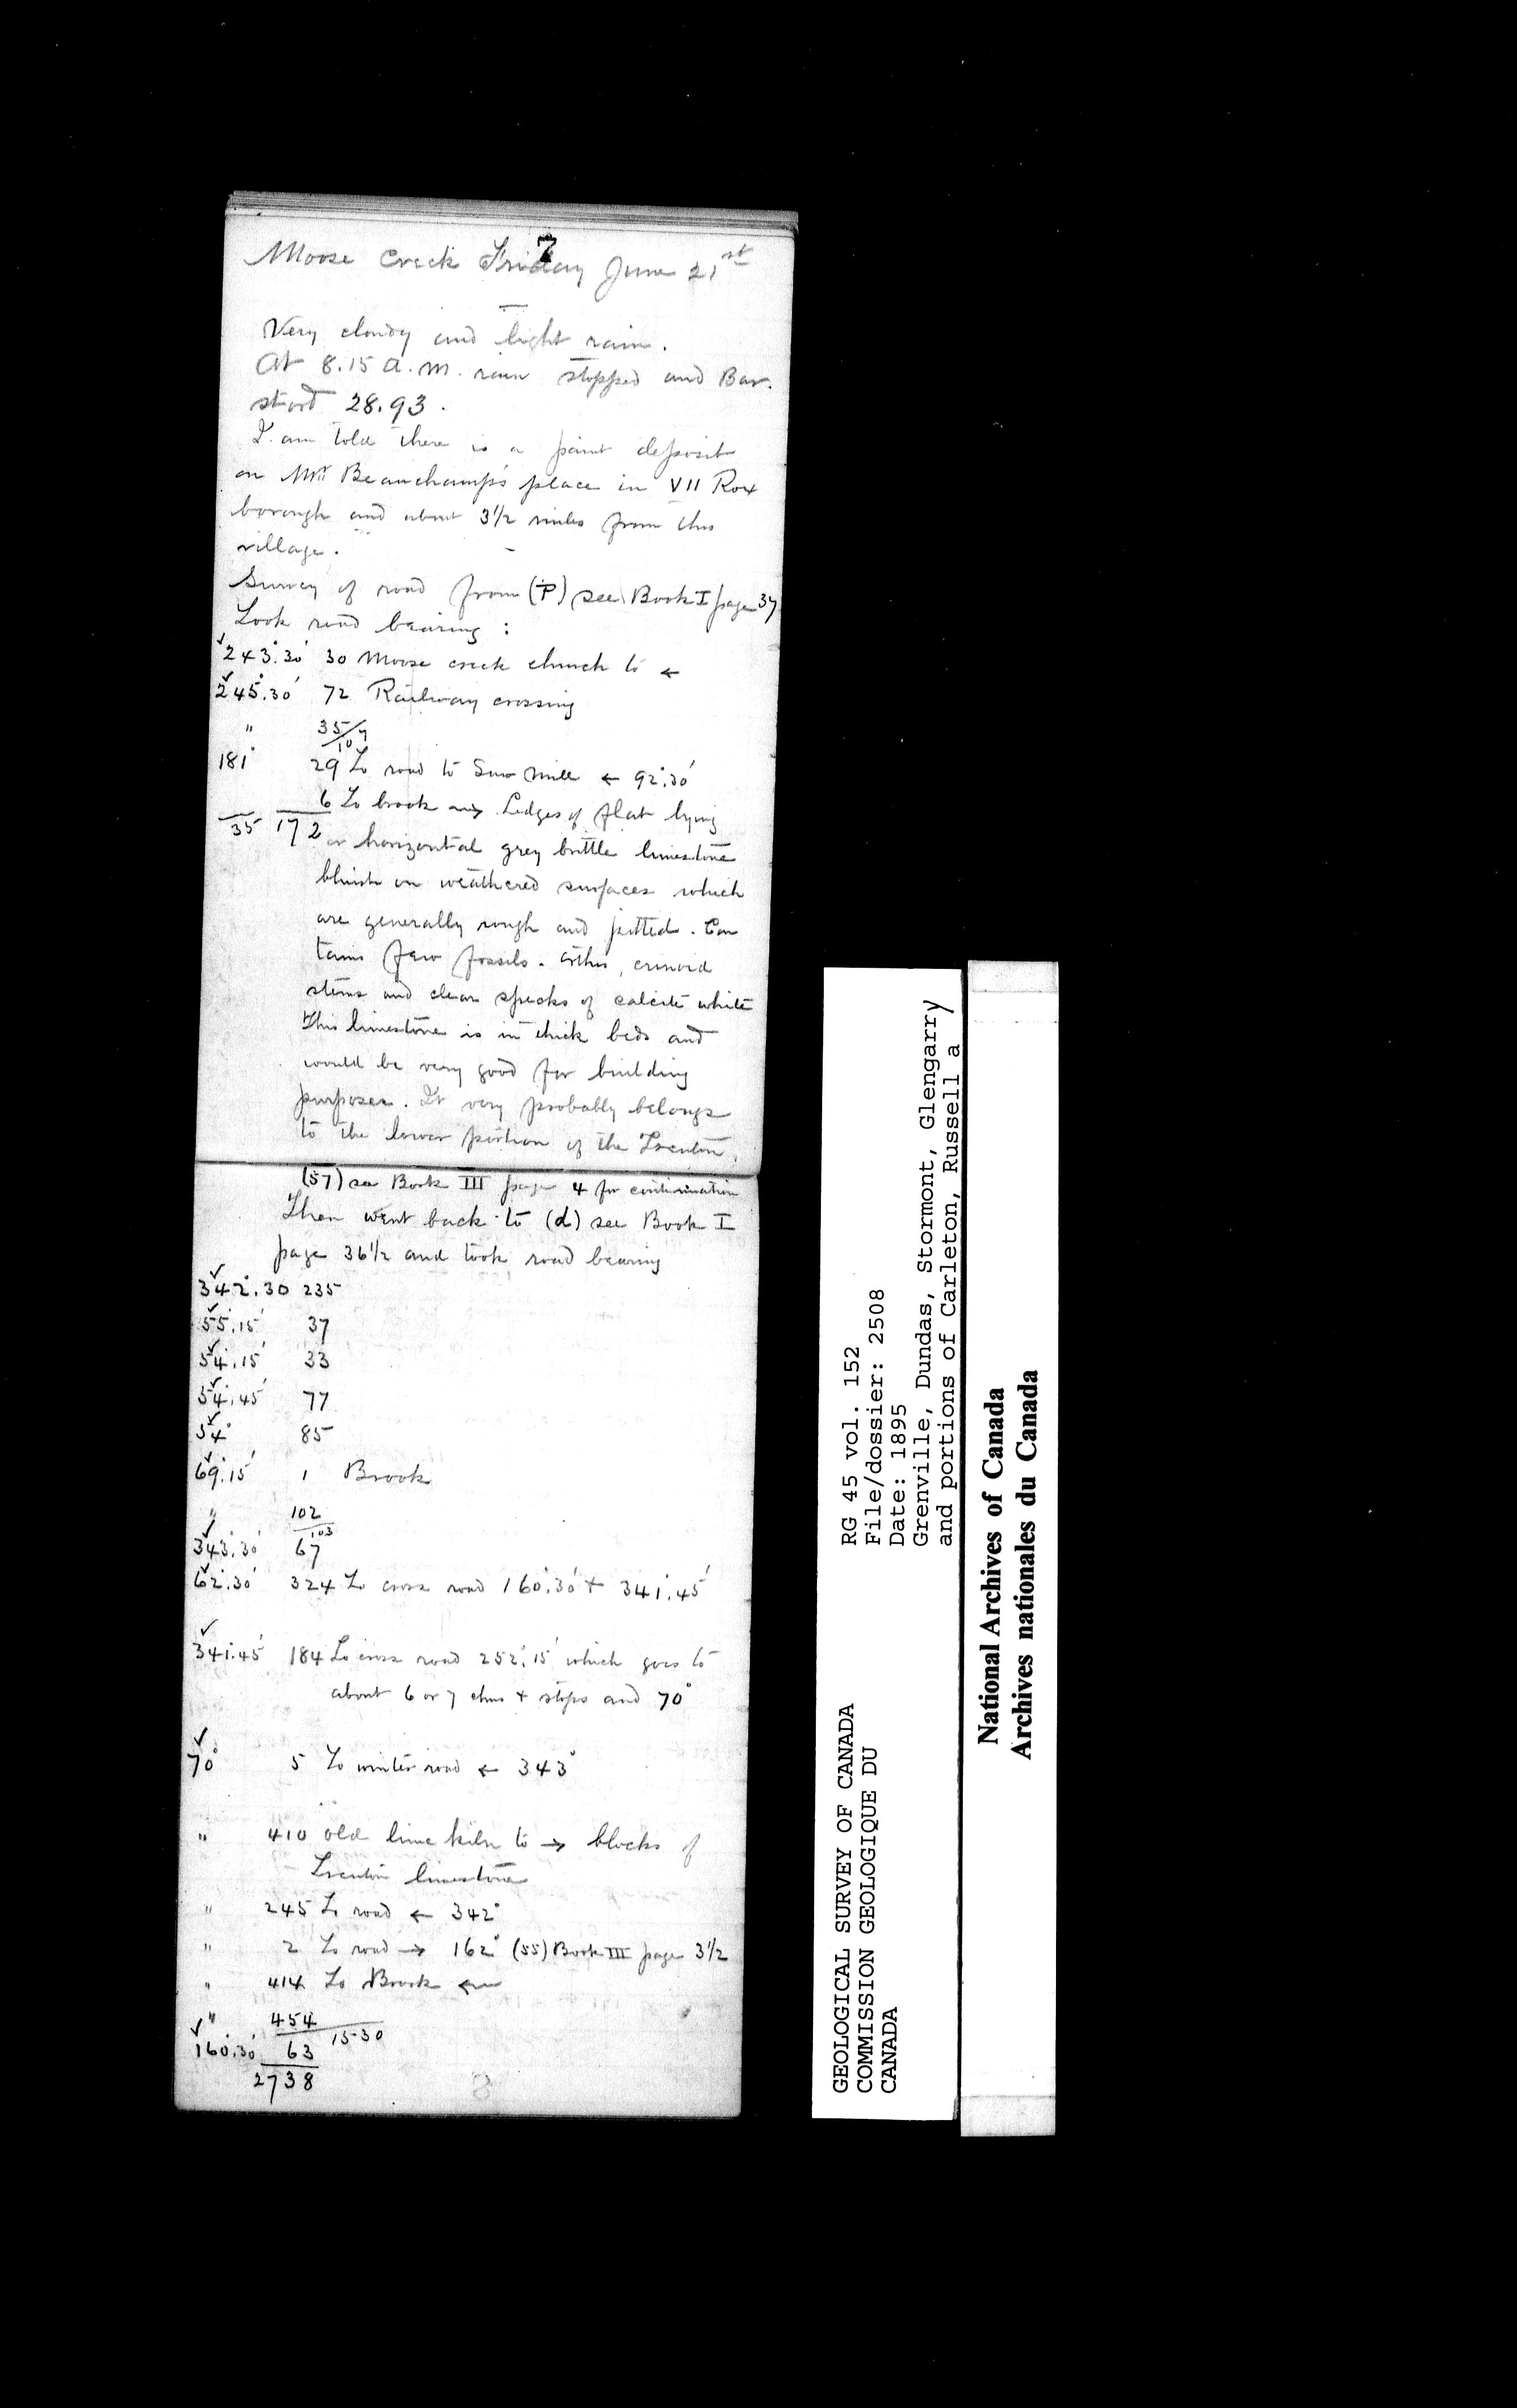 7
Moose Creek Friday June 21st
Very cloudy and light rain.
At 8.15 a.m. rain stopped and Bar.
stood 28.93.
I am told there is a paint deposit
on Mr Beauchamp's place in VII Rox
borough and about 3 1/2 miles from this
village.
Survey of road from (P) see Book I page 37
Took road bearing :
243°.30' 30 Moose creek church to ←
245°.30' 72 Railway crossing
" 35/107
181° 29 To road to Saw Mill ← 92°.30'
6 To brook → Ledges of flat lying
35 172 or horizontal grey brittle limestone
bluish on weathered surfaces which
are generally rough and pitted. Con
tains few fossils. Orthis, crinoid
stems and clear specks of calcite white
This limestone is in thick beds and
would be very good for building
purposes. It very probably belongs
to the lower portion of the Trenton.
(57) see Book III page 4 for continuation
Then went back to (d) see Book I
page 36 1/2 and took road bearing
342°.30 235
55°.15' 37
54°.15' 33
54°.45' 77
54° 85
69°.15' 1 Brook
" 102
103
343°.30' 67
62°.30' 324 To cross road 160°.30' + 341°.45'
341°.45' 184 To cross road 252°.15' which goes to
about 6 or 7 chns + stops and 70°
70° 5 To winter road ← 343°
" 410 old lime kiln to → blocks of
Trenton limestone
" 245 To road ← 342°
" 2 To road → 162° (55) Book III page 3 1/2
" 414 To Brook ←
" 454
1530
160°.30' 63
2738
GEOLOGICAL SURVEY OF CANADA
COMMISSION GEOLOGIQUE DU
CANADA
RG 45 vol. 152
File/dossier: 2508
Date: 1895
Grenville, Dundas, Stormont, Glengarry
and portions of Carleton, Russell a
National Archives of Canada
Archives nationales du Canada